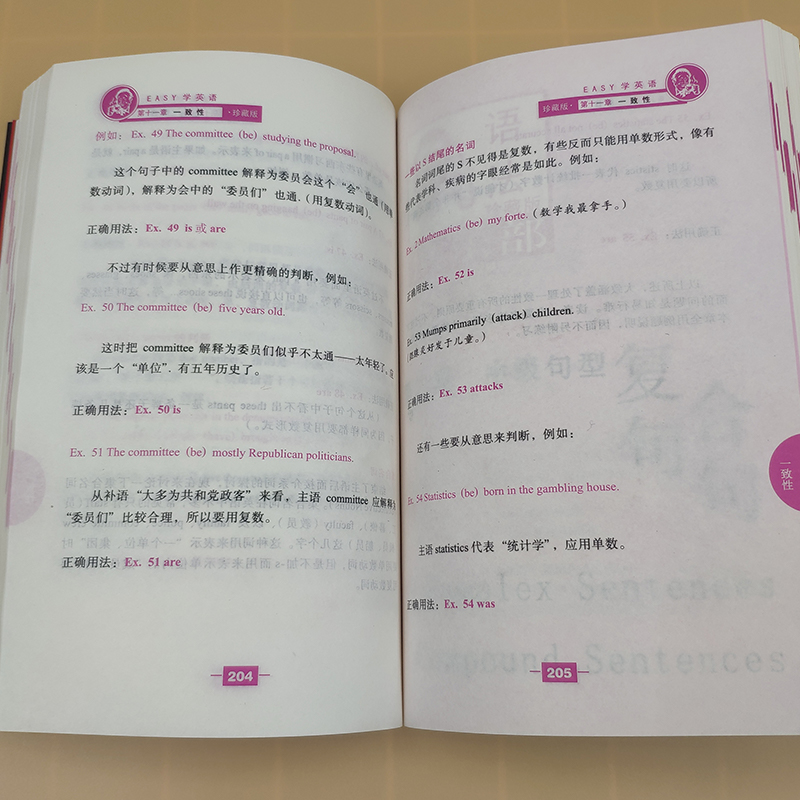 EASY学英语
第十一章 一致性 ·珍藏版
例如：Ex. 49 The committee (be) studying the proposal.
这个句子中的 committee 解释为委员会这个“会”也通（用单
数动词），解释为会中的“委员们”也通.（用复数动词）。
正确用法：Ex. 49 is 或 are
不过有时候要从意思上作更精确的判断，例如：
Ex. 50 The committee（be）five years old.
这时把 committee 解释为委员们似乎不太通——太年轻了。应
该是一个“单位”. 有五年历史了。
正确用法：Ex. 50 is
Ex. 51 The committee（be）mostly Republican politicians.
从补语“大多为共和党政客”来看，主语 committee 应解释为
“委员们”比较合理，所以要用复数。
正确用法：Ex. 51 are
204
EASY学英语
珍藏版· 第十一章 一致性
一些以 S 结尾的名词
名词词尾的 S 不见得是复数，有些反而只能用单数形式，像有
些代表学科、疾病的字眼经常是如此。例如：
Ex. 2 Mathematics（be）my forte.（数学我最拿手。）
正确用法：Ex. 52 is
Ex. 53 Mumps primarily（attack）children.
好发于儿童。）
正确用法：Ex. 53 attacks
还有一些要从意思来判断，例如：
Ex. 54 Statistics（be）born in the gambling house.
主语 statistics 代表“统计学”，应用单数。
正确用法：Ex. 54 was
205
一致性